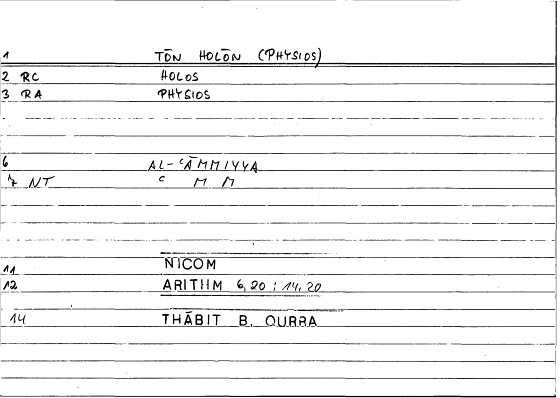 1 TŌN HOLŌN (PHYSIOS)
2 RC HOLOS
3 RA PHYSIOS
6 AL-ʿĀMMIYYA
7 NT ʿ M M
11 NICOM
12 ARITHM 6,20 ; 14,20
14 THĀBIT B. QURRA